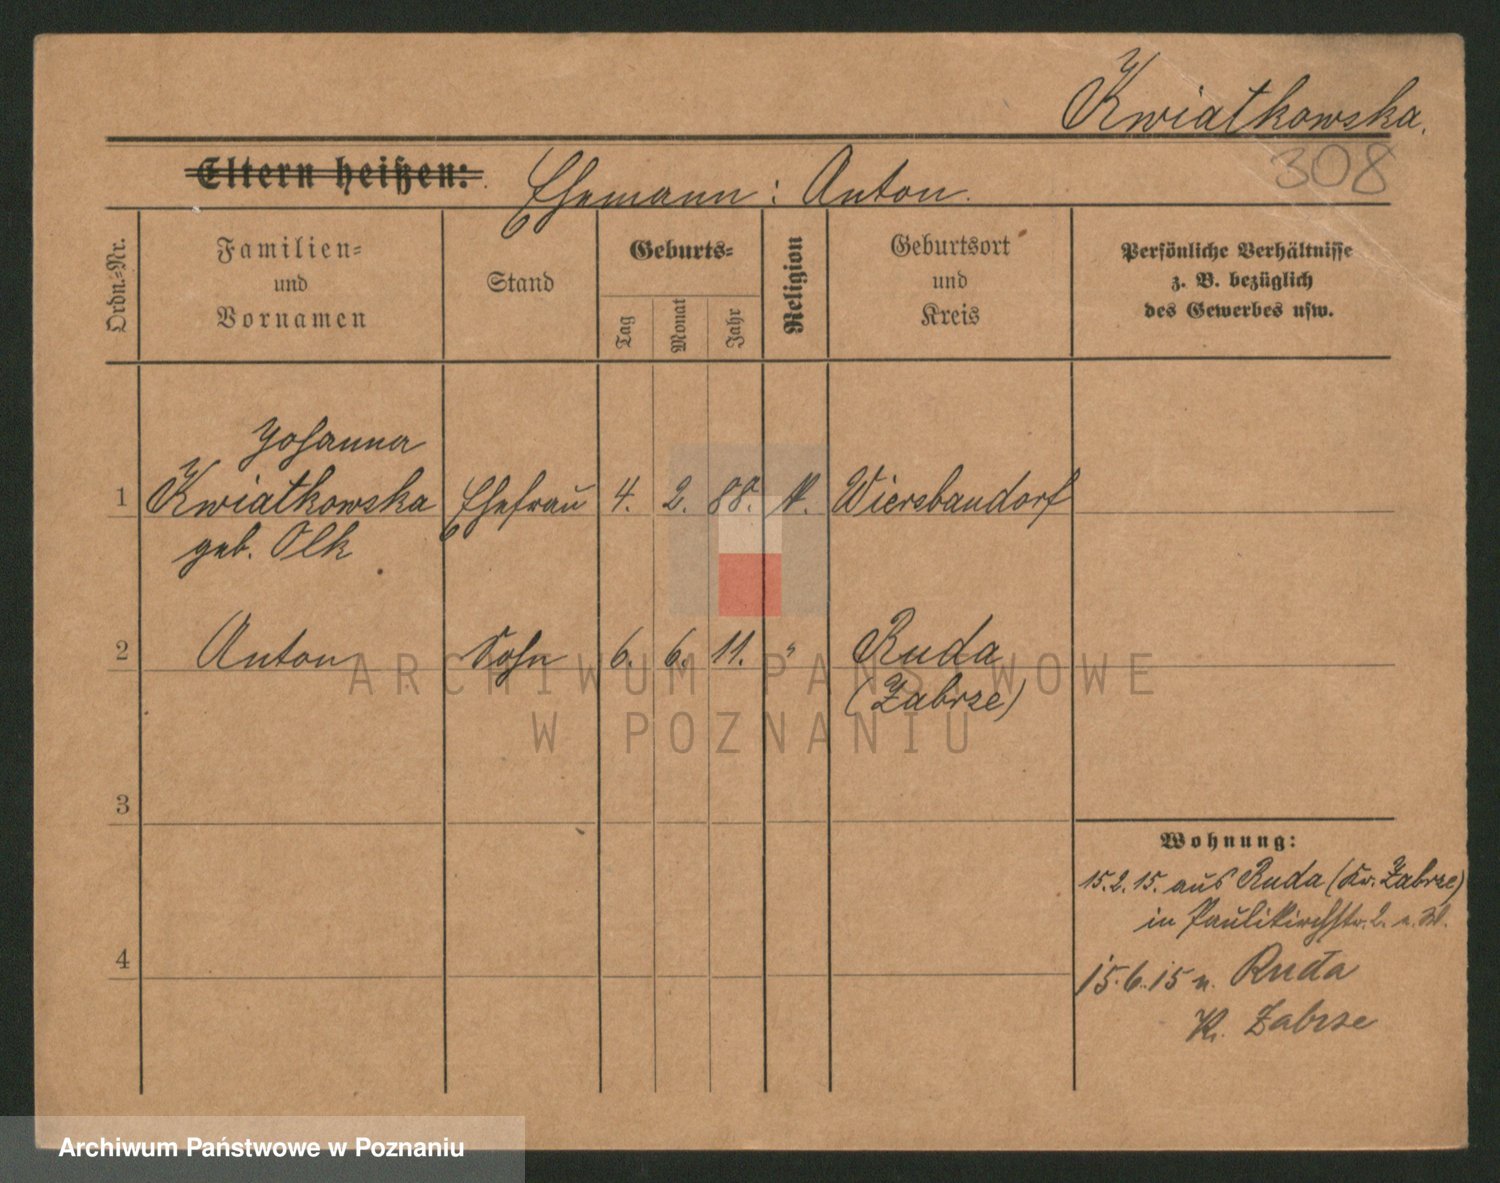 Kwiatkowska.
308
Eltern heißen: Ehemann: Anton.
Ordn.-Nr.
Familien-
und
Vornamen
Stand
Geburts-
Tag
Monat
Jahr
Religion
Geburtsort
und
Kreis
Persönliche Verhältnisse
z. B. bezüglich
des Gewerbes usw.
Johanna
1 Kwiatkowska Ehefrau 4. 2. 88. K. Wiersbaudorf
geb. Olk
2 Anton Sohn 6. 6. 11. " Ruda
(Zabrze)
3
4
Wohnung:
15.2.15. aus Ruda (Kr. Zabrze)
in Paulikirchstr. 2.
15.6.15 n. Ruda
Kr. Zabrze
ARCHIWUM PAŃSTWOWE
W POZNANIU
Archiwum Państwowe w Poznaniu